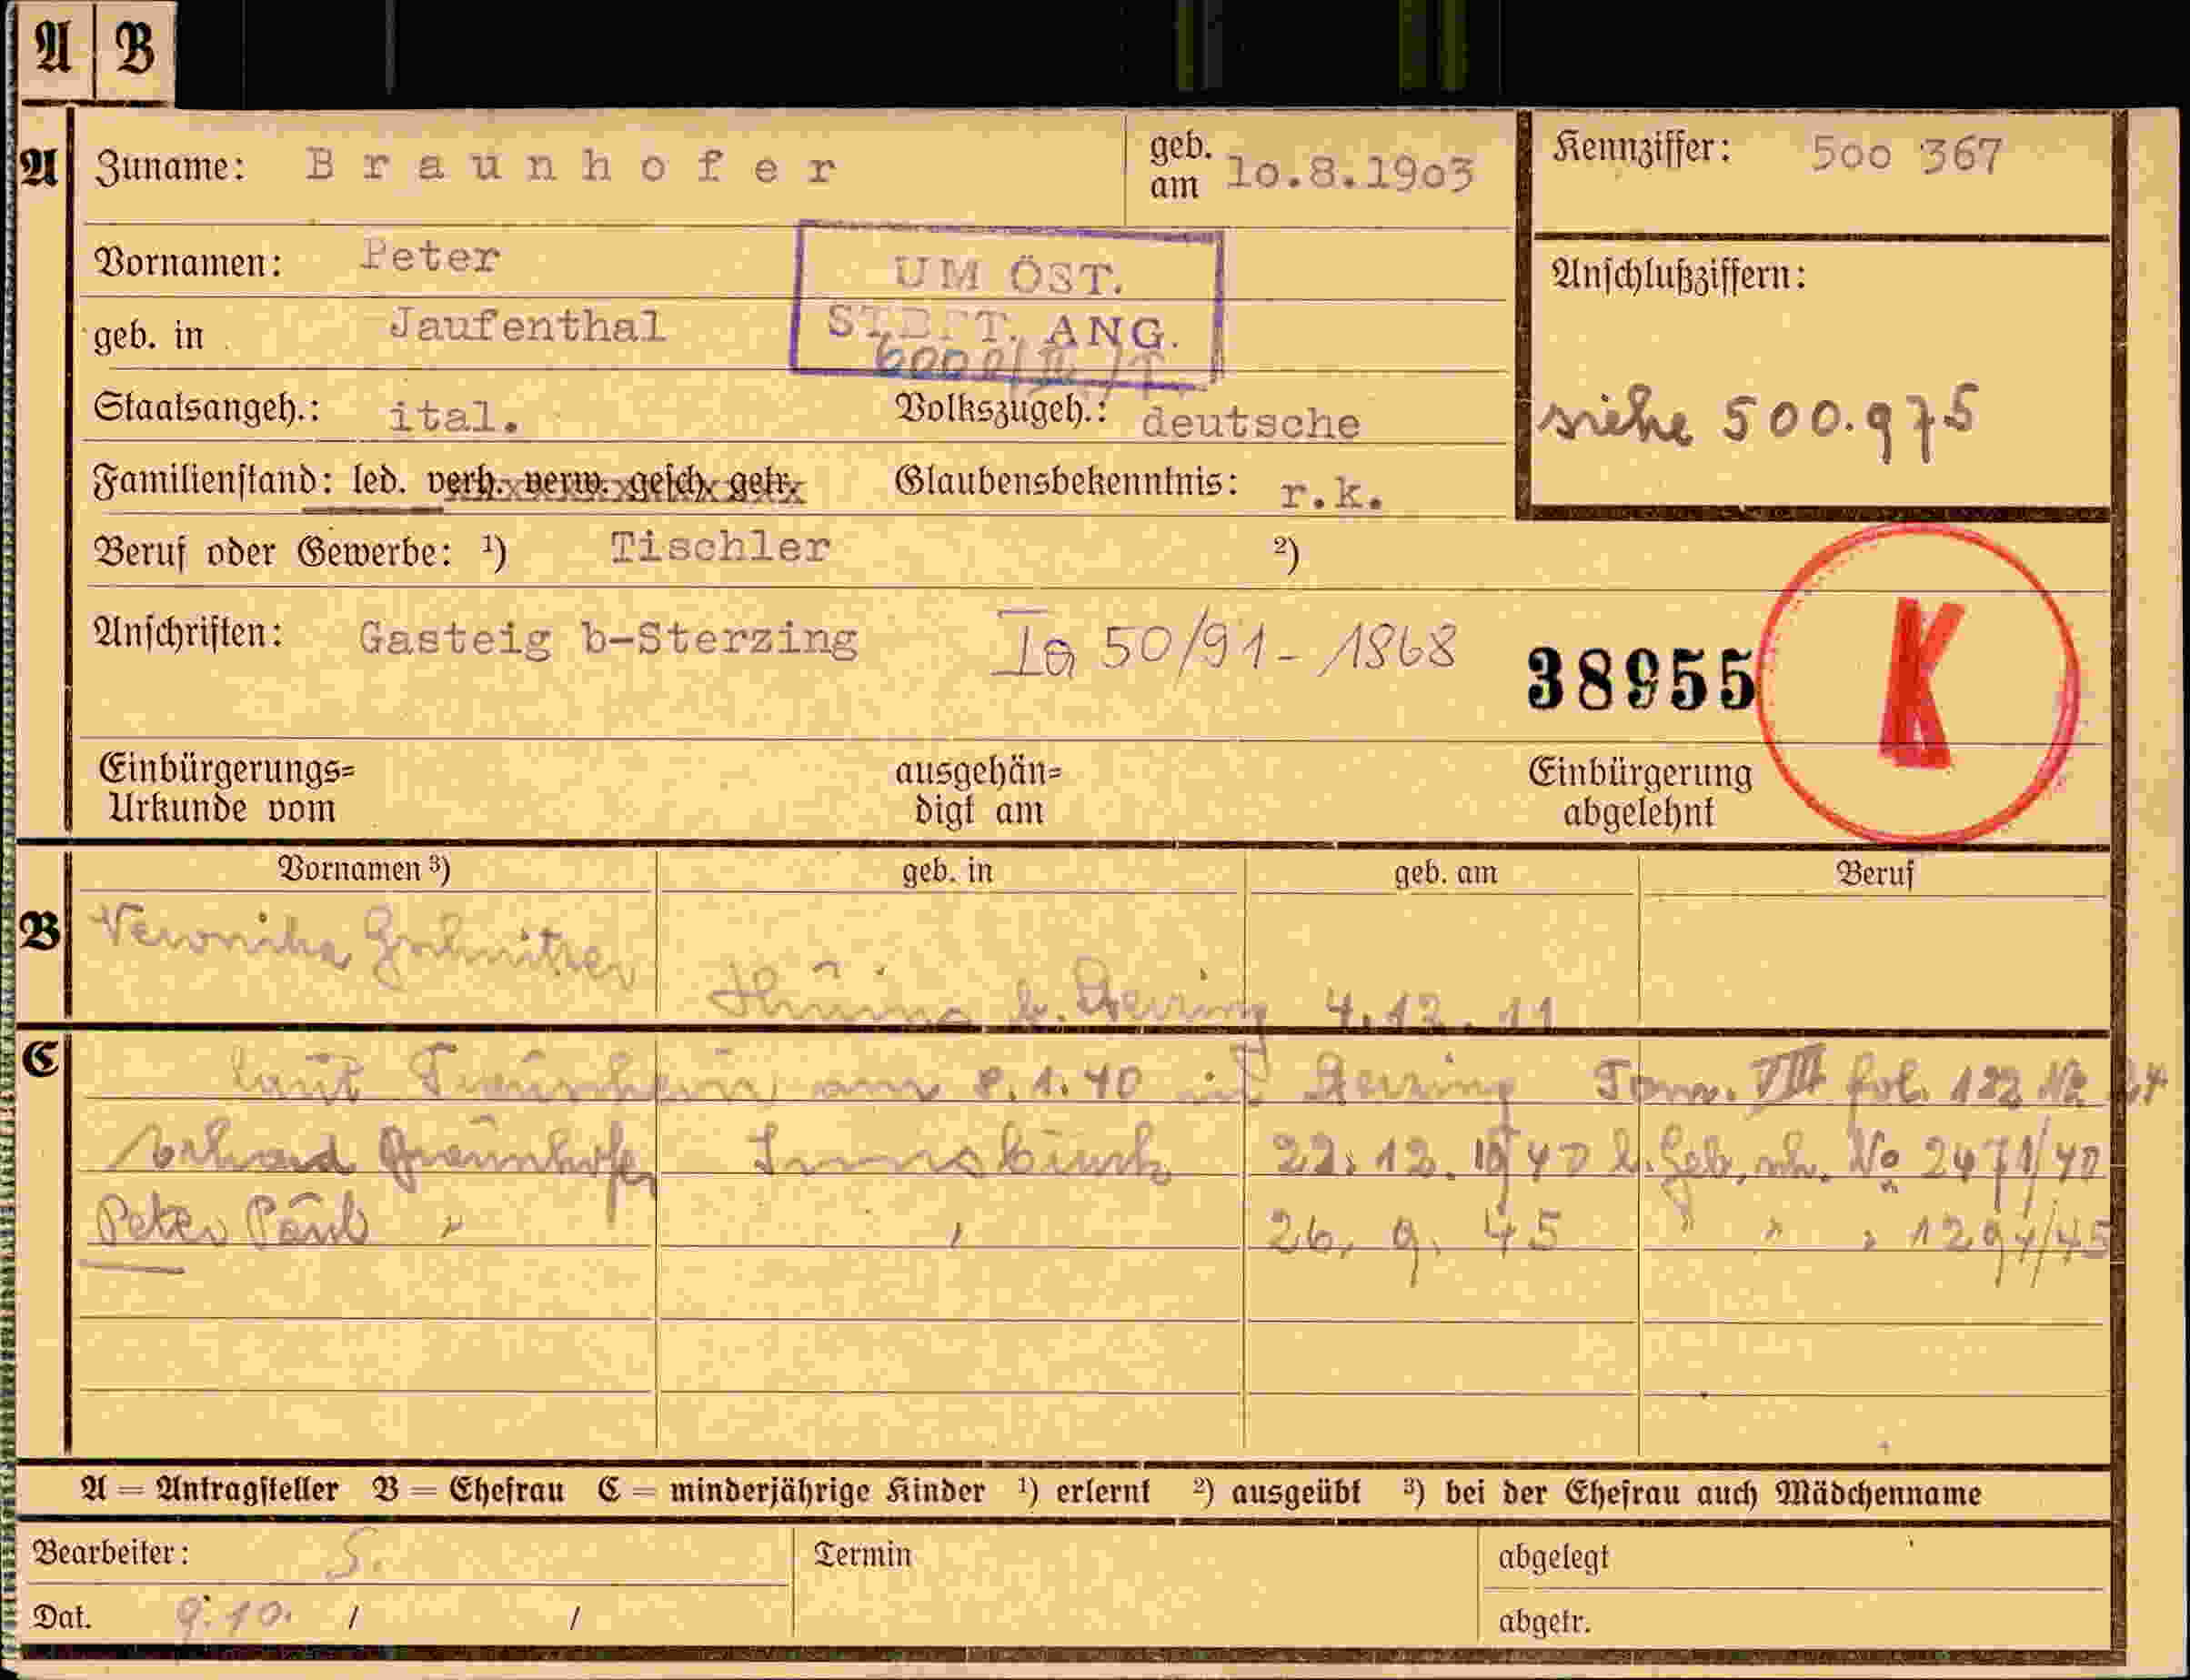 A B
A Zuname: Braunhofer geb. am 10.8.1903 Kennziffer: 500 367
Vornamen: Peter
UM ÖST.
STBFT. ANG.
Anschlußziffern:
geb. in Jaufenthal
siehe 500.975
Staatsangeh.: ital. Volkszugeh.: deutsche
Familienstand: led. verh. verw. gesch. getr. Glaubensbekenntnis: r.k.
Beruf oder Gewerbe: 1) Tischler 2)
Anschriften: Gasteig b-Sterzing Ia 50/91-1868 38955 K
Einbürgerungs= ausgehän= Einbürgerung
Urkunde vom digt am abgelehnt
Vornamen 3) geb. in geb. am Beruf
B Veronika
b. Sterzing 4.12.11
C laut Trauschein am 8.1.40 in Sterzing Tom. VIII fol. 122 No 24
Erhard Braunhofer Innsbruck 22.12.1940 l. Geb. No 2471/40
Peter Paul " " 26.9.45 " " " 1294/45
A = Antragsteller B = Ehefrau C = minderjährige Kinder 1) erlernt 2) ausgeübt 3) bei der Ehefrau auch Mädchenname
Bearbeiter: S. Termin abgelegt
Dat. 9.10. / / abgetr.